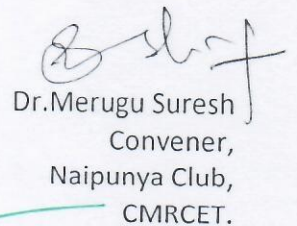 Dr.Merugu Suresh
Convener,
Naipunya Club,
CMRCET.